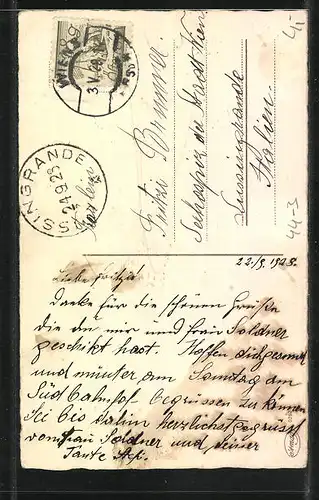 4,-
WIEN 89
SSINGRANDE
24.9.28
Fritzi Brunner
Seehospiz der Stadt Wien
Lussingrande
Italien.
44-3
22./9. 1928.
Liebe Fritzi!
Danke für die schönen Grüße
die du mir und frau Soldner
geschikt hast. Hoffen dich gesund
und munter am Samstag am
Südbahnhof begrüssen zu können
Sei bis dahin herzlichst gegrüsst
von frau Soldner und deiner
Tante